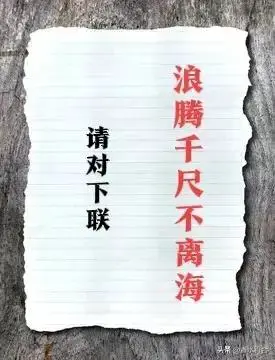 浪腾千尺不离海
请对下联